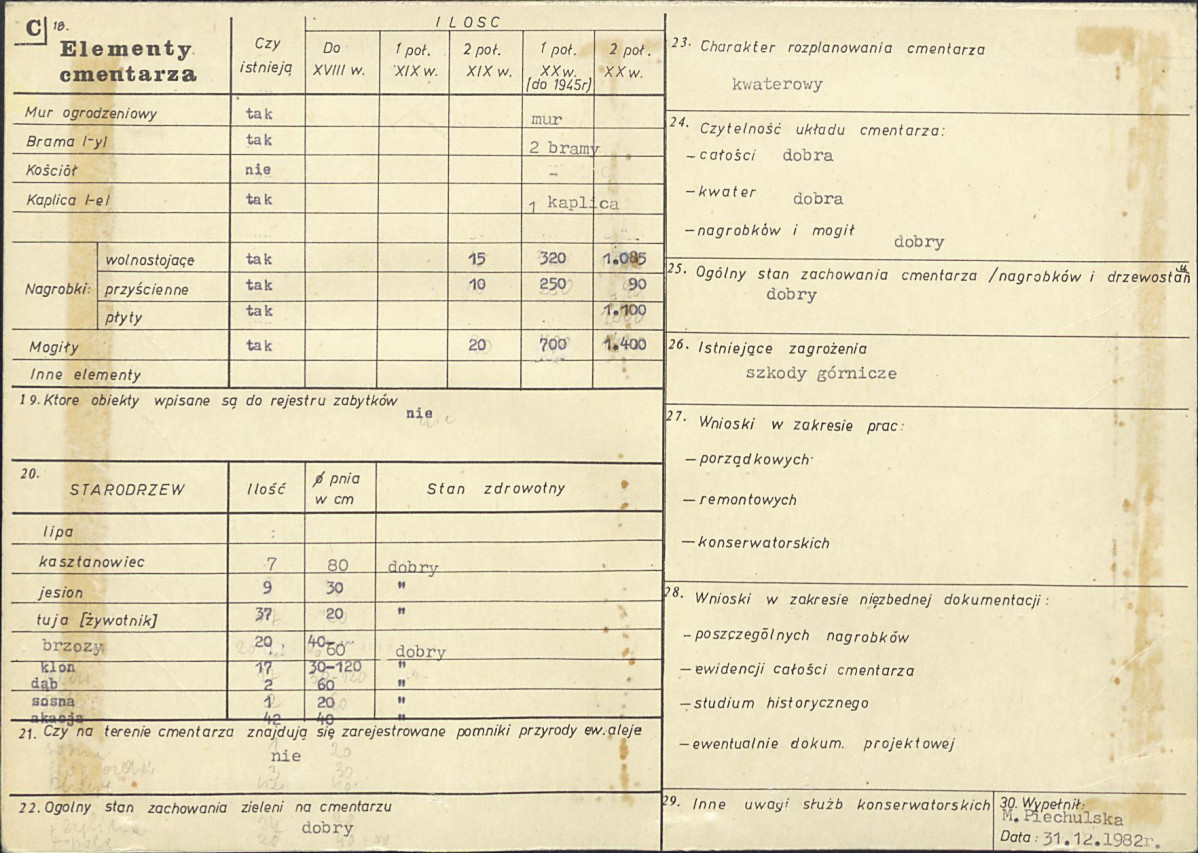 C 18.
Elementy cmentarza
Czy istnieją
ILOSC
Do XVIII w.
1 poł. XIX w.
2 poł. XIX w.
1 poł. XX w. (do 1945r)
2 poł. XX w.
Mur ogrodzeniowy tak mur
Brama /-y/ tak 2 bramy
Kościół nie -
Kaplica /-e/ tak 1 kaplica
Nagrobki:
wolnostojące tak 15 320 1.085
przyścienne tak 10 250 90
płyty tak 1.100
Mogiły tak 20 700 1.400
Inne elementy
19. Ktore obiekty wpisane są do rejestru zabytków
nie
20.
STARODRZEW Ilość ø pnia w cm Stan zdrowotny
lipa
kasztanowiec 7 80 dobry
jesion 9 30 "
tuja [żywotnik] 37 20 "
brzozy 20 40-60 dobry
klon 17 30-120 "
dąb 2 60 "
sosna 1 20 "
akacja 42 40 "
21. Czy na terenie cmentarza znajdują się zarejestrowane pomniki przyrody ew. aleje
nie
22. Ogolny stan zachowania zieleni na cmentarzu
dobry
23. Charakter rozplanowania cmentarza
kwaterowy
24. Czytelność układu cmentarza:
- całości dobra
- kwater dobra
- nagrobków i mogił dobry
25. Ogólny stan zachowania cmentarza /nagrobków i drzewostan
dobry
26. Istniejące zagrożenia
szkody górnicze
27. Wnioski w zakresie prac:
- porządkowych
- remontowych
- konserwatorskich
28. Wnioski w zakresie nięzbednej dokumentacji:
- poszczególnych nagrobków
- ewidencji całości cmentarza
- studium historycznego
- ewentualnie dokum. projektowej
29. Inne uwagi służb konserwatorskich
30. Wypełnił:
M. Piechulska
Data: 31.12.1982r.